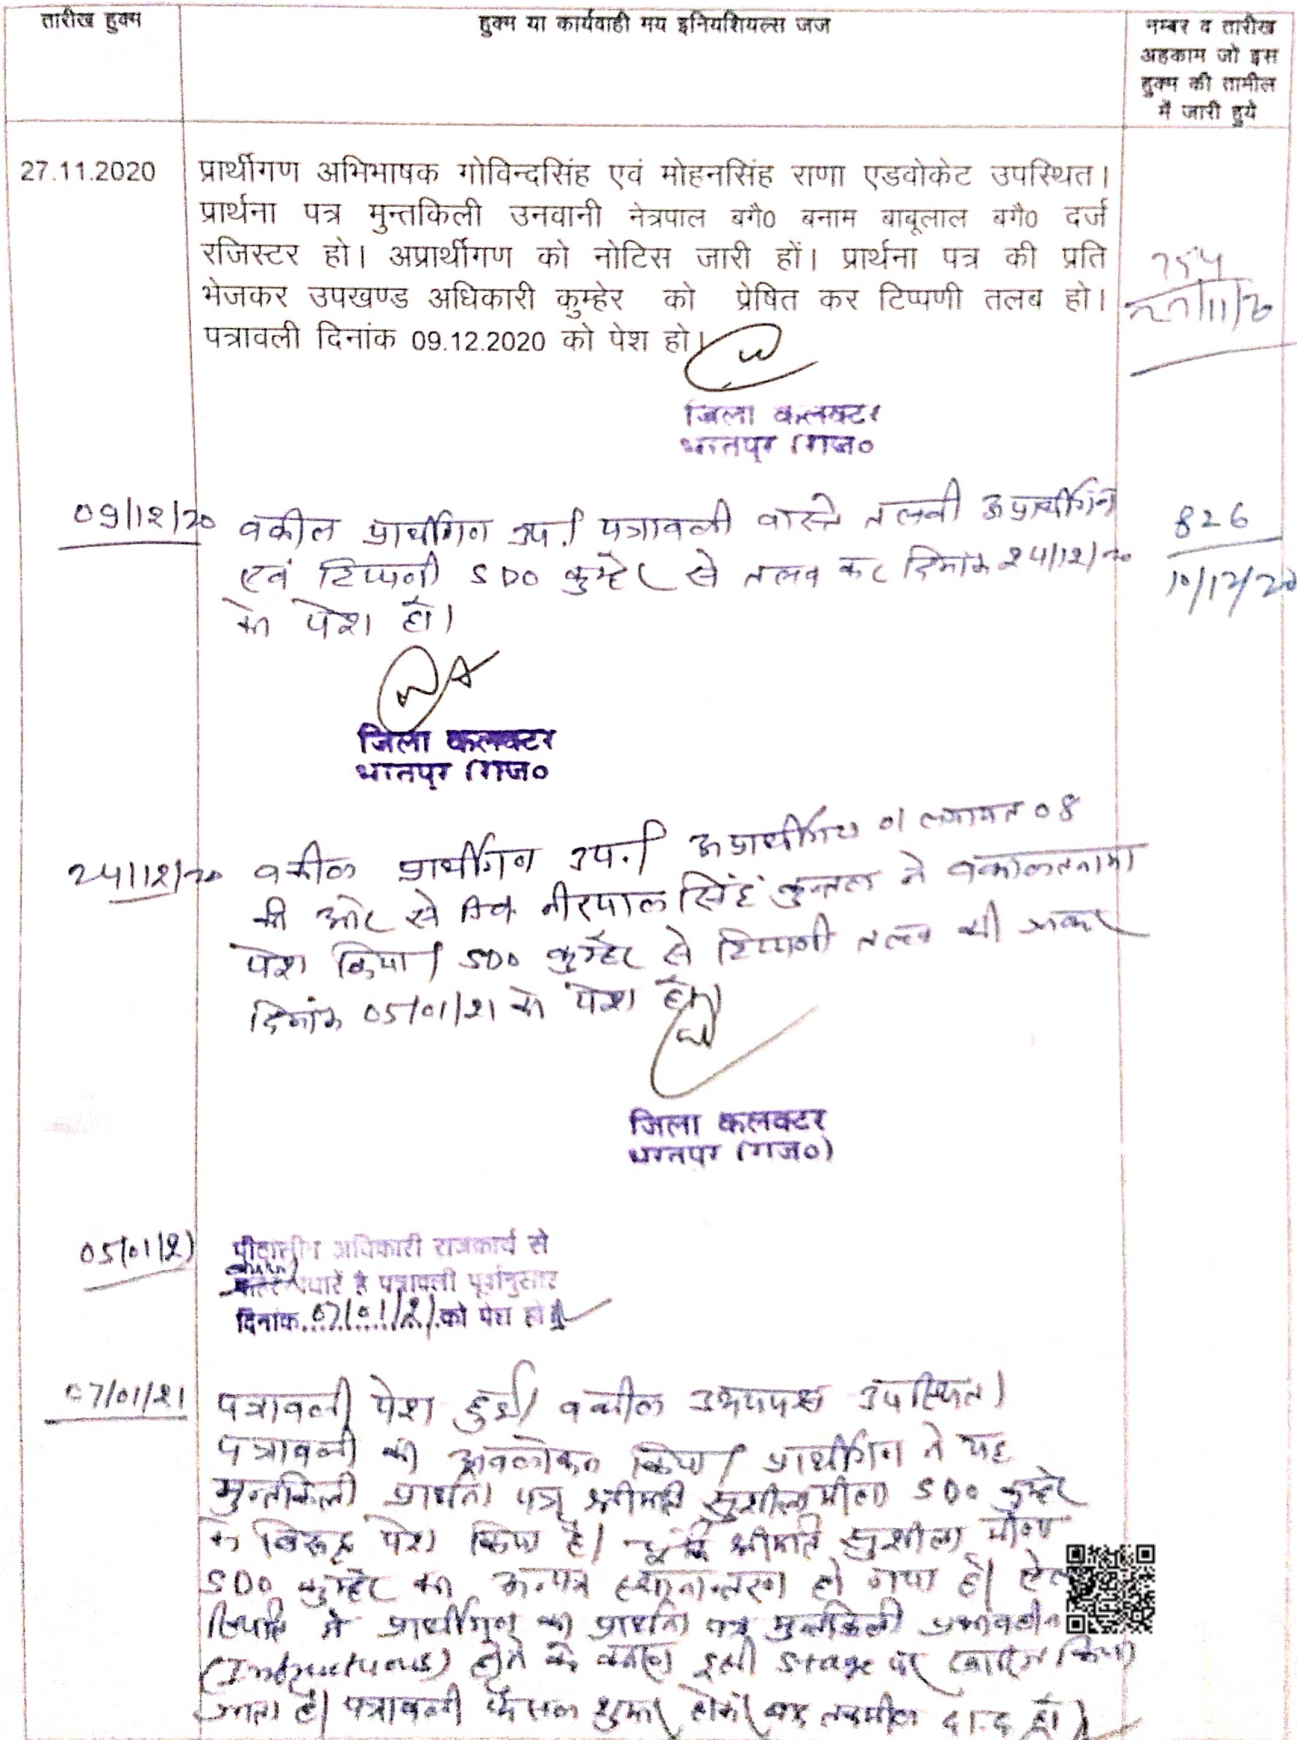 तारीख हुक्म
हुक्म या कार्यवाही मय इनियशियल्स जज
नम्बर व तारीख
अहकाम जो इस
हुक्म की तामील
में जारी हुये
27.11.2020
प्रार्थीगण अभिभाषक गोविन्दसिंह एवं मोहनसिंह राणा एडवोकेट उपस्थित।
प्रार्थना पत्र मुन्तकिली उनवानी नेत्रपाल बगै0 बनाम बाबूलाल बगै0 दर्ज
रजिस्टर हो। अप्रार्थीगण को नोटिस जारी हों। प्रार्थना पत्र की प्रति
भेजकर उपखण्ड अधिकारी कुम्हेर को प्रेषित कर टिप्पणी तलब हो।
पत्रावली दिनांक 09.12.2020 को पेश हो।
जिला कलक्टर
भरतपुर (राज०
09/12/20
वकील प्रार्थीगण उप.। पत्रावली वास्ते तलबी अप्रार्थीगण
एवं टिप्पणी SDO कुम्हेर से तलब कर दिनांक 24/12/20
को पेश हो।
826
10/12/20
जिला कलक्टर
भरतपुर (राज०
24/12/20
वकील प्रार्थीगण उप.। अप्रार्थीगण 01 लगायत 08
की ओर से सिंह कुन्तल ने वकालतनामा
पेश किया। SDO कुम्हेर से टिप्पणी तलब की जाकर
दिनांक 05/01/21 को पेश हो।
जिला कलक्टर
भरतपुर (राज०)
05/01/21
पीठासीन अधिकारी राजकार्य से
पधारें है पत्रावली पूर्वानुसार
दिनांक 07/01/21 को पेश हो
07/01/21
पत्रावली पेश हुई। वकील उभयपक्ष उपस्थित।
पत्रावली का अवलोकन किया। प्रार्थीगण ने यह
मुन्तकिली प्रार्थना पत्र श्रीमति सुशीला मीणा SDO कुम्हेर
के विरूद्ध पेश किया है। चूंकि श्रीमति सुशीला मीणा
SDO कुम्हेर का अन्यत्र स्थानान्तरण हो गया है।
स्थिति में प्रार्थीगण का प्रार्थना पत्र मुन्तकिली
(Infructuous) होने के कारण इसी stage पर खारिज किया
जाता है। पत्रावली फैसल शुमार होकर बाद तकमील दा.द. हो।